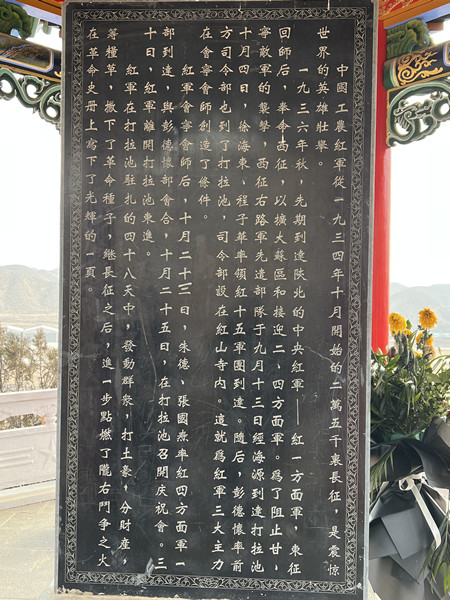 中國工農紅軍從一九三四年十月開始的二萬五千裏長征，是震惊
世界的英雄壮擧。
一九三六年秋，先期到達陕北的中央紅軍——紅一方面軍，東征
回師后，奉命西征，以擴大蘇區和接迎二、四方面軍。爲了阻止甘、
寧敵軍的襲擊，西征右路軍先遣部隊于九月十三日經海源到達打拉池
十月四日，徐海東、程子華率領紅十五軍團到達。随后，彭德懷率前
方司令部也到了打拉池，司令部設在紅山寺内。這就爲紅軍三大主力
在會寧會師創造了條件。
紅軍會寧會師后，十月二十三日，朱德、張國燾率紅四方面軍一
部到達，與彭德懷部會合，十月二十五日，在打拉池召開庆祝會。三
十日，紅軍離開打拉池東進。
紅軍在打拉池驻扎的四十八天中，發動群衆，打土豪，分財産，
筹糧草，撒下了革命種子，継長征之后，進一步點燃了隴右鬥争之火
在革命史册上寫下了光輝的一頁。